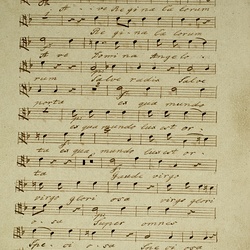 A - ve Regina cœlorum
Regina cœlorum
Ave Domina Angelo-
rum Salve radix Salve
porta ex qua mundo
ex qua mundo lux est or-
ta ex qua mundo lux est or-
ta Gaude virgo
virgo gloriosa virgo glori-
osa Super omnes
Speciosa Speciosa